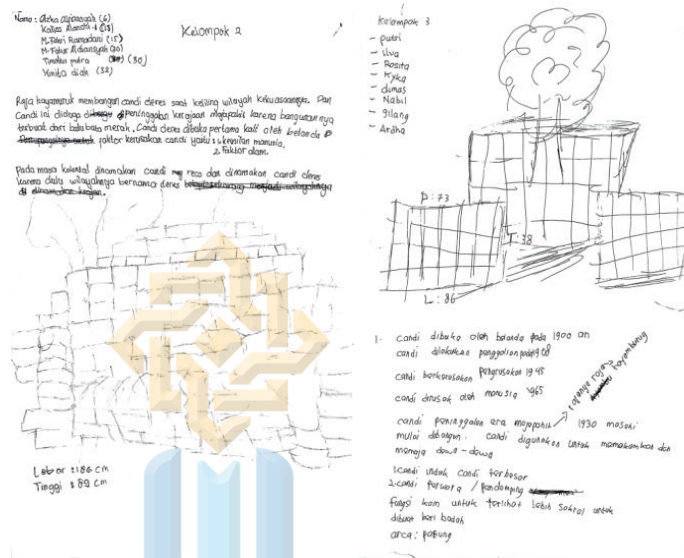 Nama : Azka
(6)
(15)
M. Fahri Ramadani (15)
M. Fatur Aldiansyah (20)
Timotius putra (30)
Yunita diah (32)
Kelompok 2
Raja hayamwuruk membangun candi deres saat keliling wilayah kekuasaannya. Dan
Candi ini diduga peninggalan kerajaan majapahit karena bangunannya
terbuat dari batu bata merah. Candi deres dibuka pertama kali oleh belanda
faktor kerusakan candi yaitu : 1. kesalian manusia.
2. Faktor alam.
Pada masa kolonial dinamakan candi reco dan dinamakan candi deres
karena dulu wilayahnya bernama deres
Lebar : 186 cm
Tinggi : 82 cm
Kelompok 3
- putri
- Rosita
- Kyka
- dimas
- Nabil
- gilang
- Ardha
P : 73
T : 38
L : 86
1. candi dibuka oleh belanda pada 1900 an
candi dilakukan penggalian pada
candi berkerusakan pengrusakan 1945
candi dirusak oleh manusia 1965
candi peninggalan era majapahit 1930 masehi
mulai dibangun. candi digunakan untuk memakamkan dan
memoja dewa - dewa
1. candi induk candi terbesar
2. candi perwara / pendamping
fungsi kain untuk terlihat lebih sakral untuk
dibuat beri badah
arca : patung